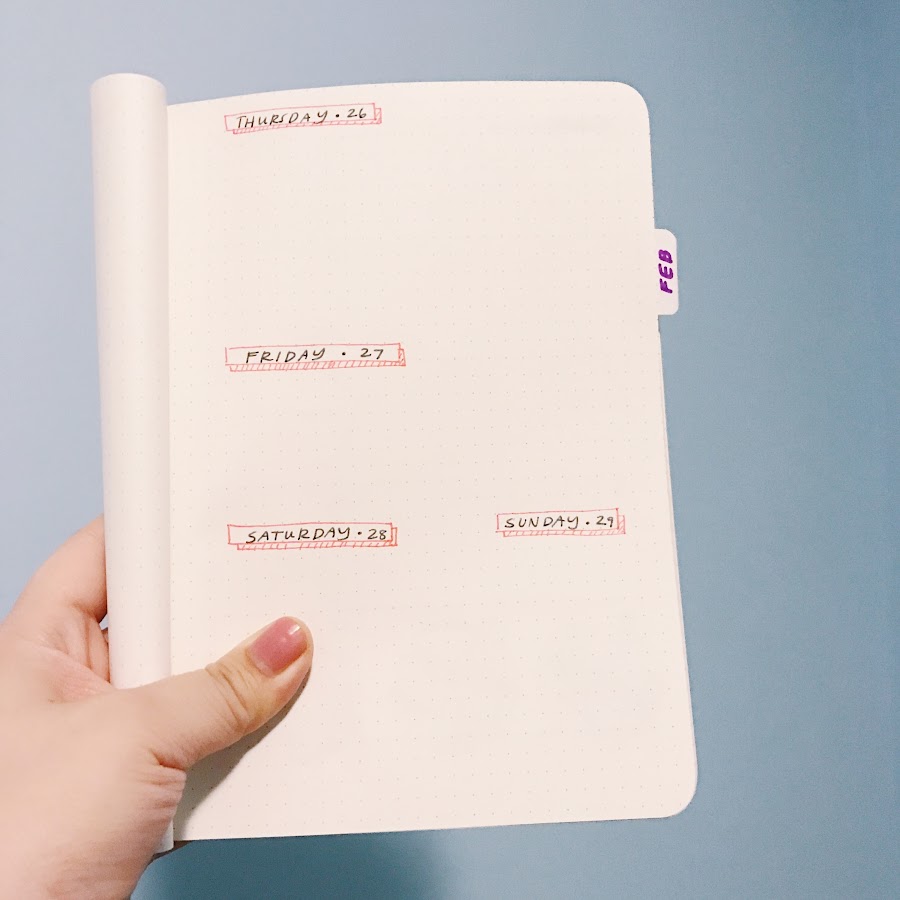 THURSDAY • 26
FEB
FRIDAY • 27
SATURDAY • 28
SUNDAY • 29